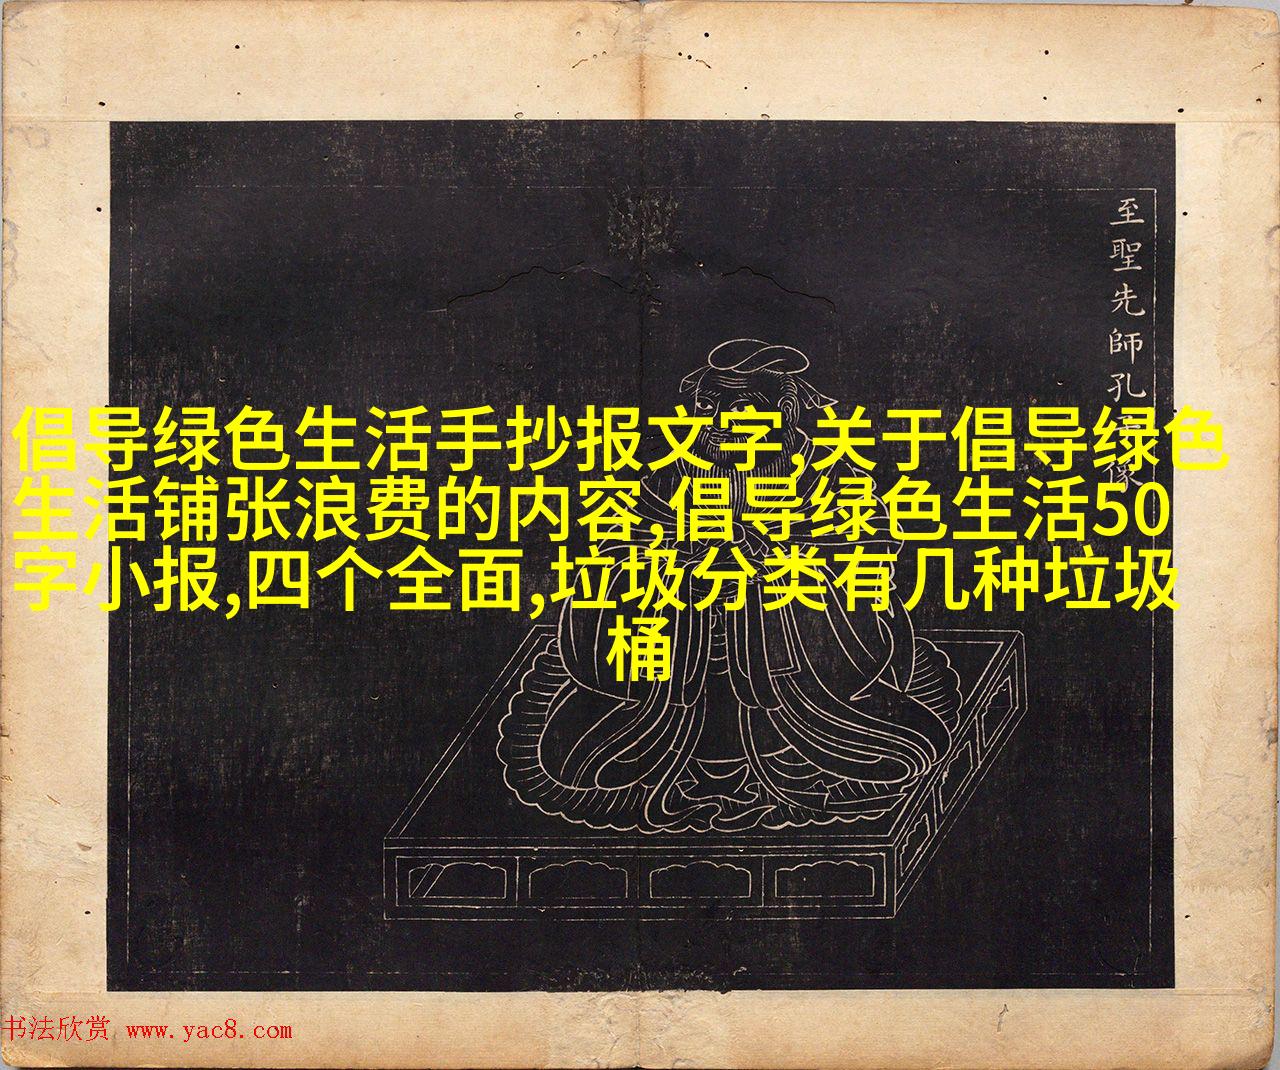 至聖先師孔
像
倡导绿色生活手抄报文字,关于倡导绿色
生活铺张浪费的内容,倡导绿色生活50
字小报,四个全面,垃圾分类有几种垃圾
桶
书法欣赏 www.yac8.com